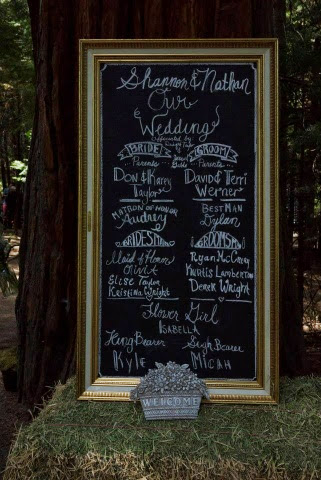 Shannon & Nathan
Our
Wedding
officiated by:
BRIDE GROOM
Parents Parents
Don & Karey David & Terri
Taylor Werner
MATRON OF HONOR BEST MAN
Audrey Dylan
BRIDESMAIDS GROOMSMEN
Maid of Honor Ryan McCrey
OLIVIA Kurtis Lamberton
Elise Taylor Derek Wright
Kristina Wright
Flower Girl
ISABELLA
Ring Bearer Sign Bearer
Kyle Micah
WELCOME